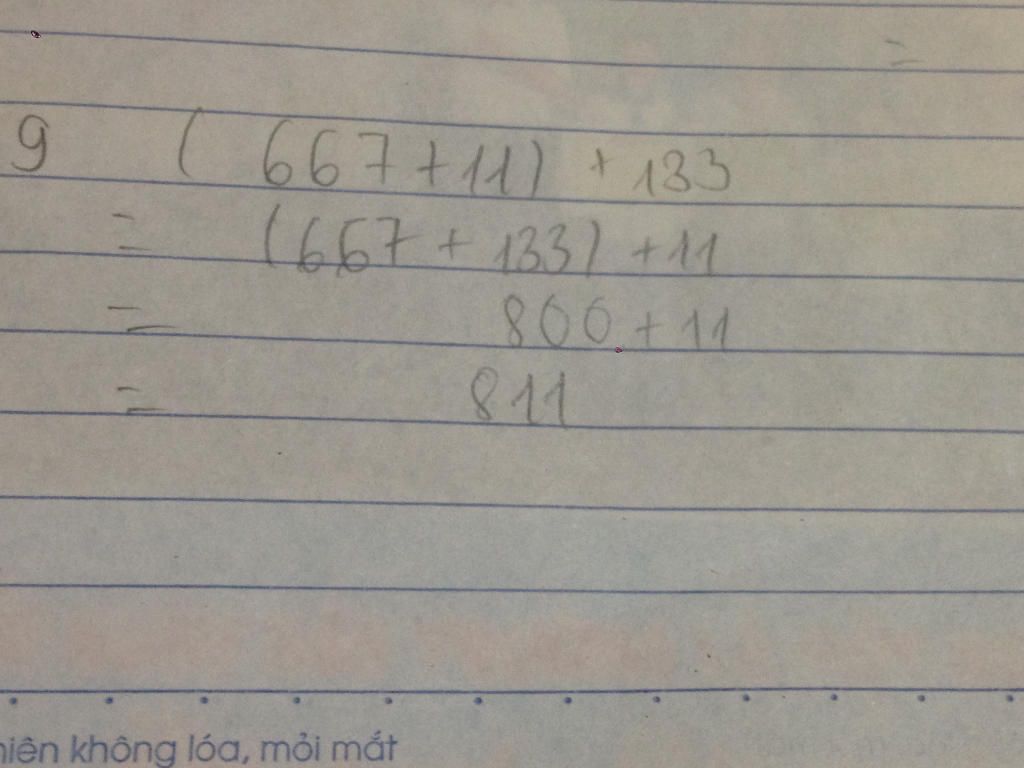 =
9 ( 667 + 11 ) + 133
= ( 667 + 133 ) + 11
= 800 + 11
= 811
hiên không lóa, mỏi mắt